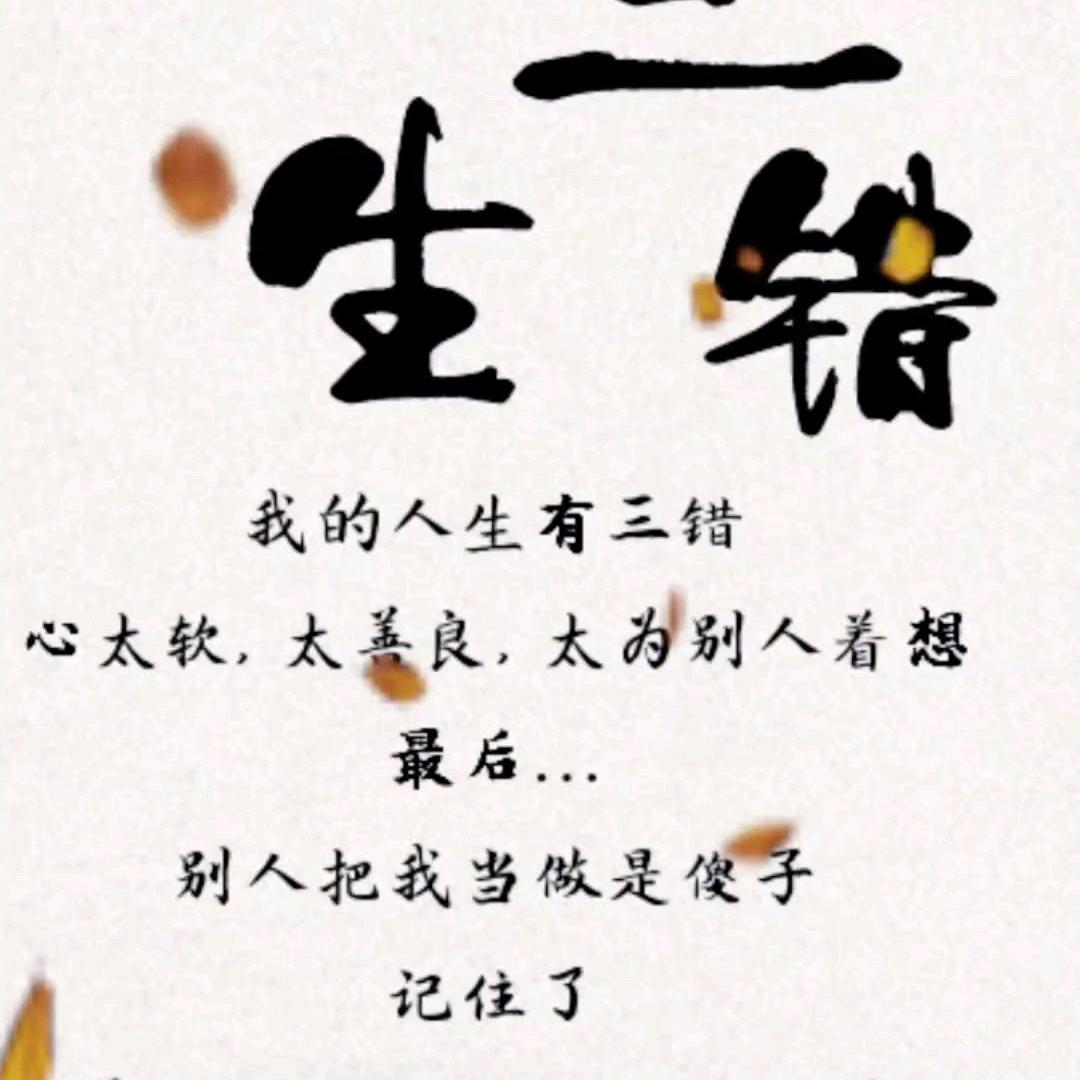 生 错
我的人生有三错
心太软，太善良，太为别人着想
最后...
别人把我当做是傻子
记住了